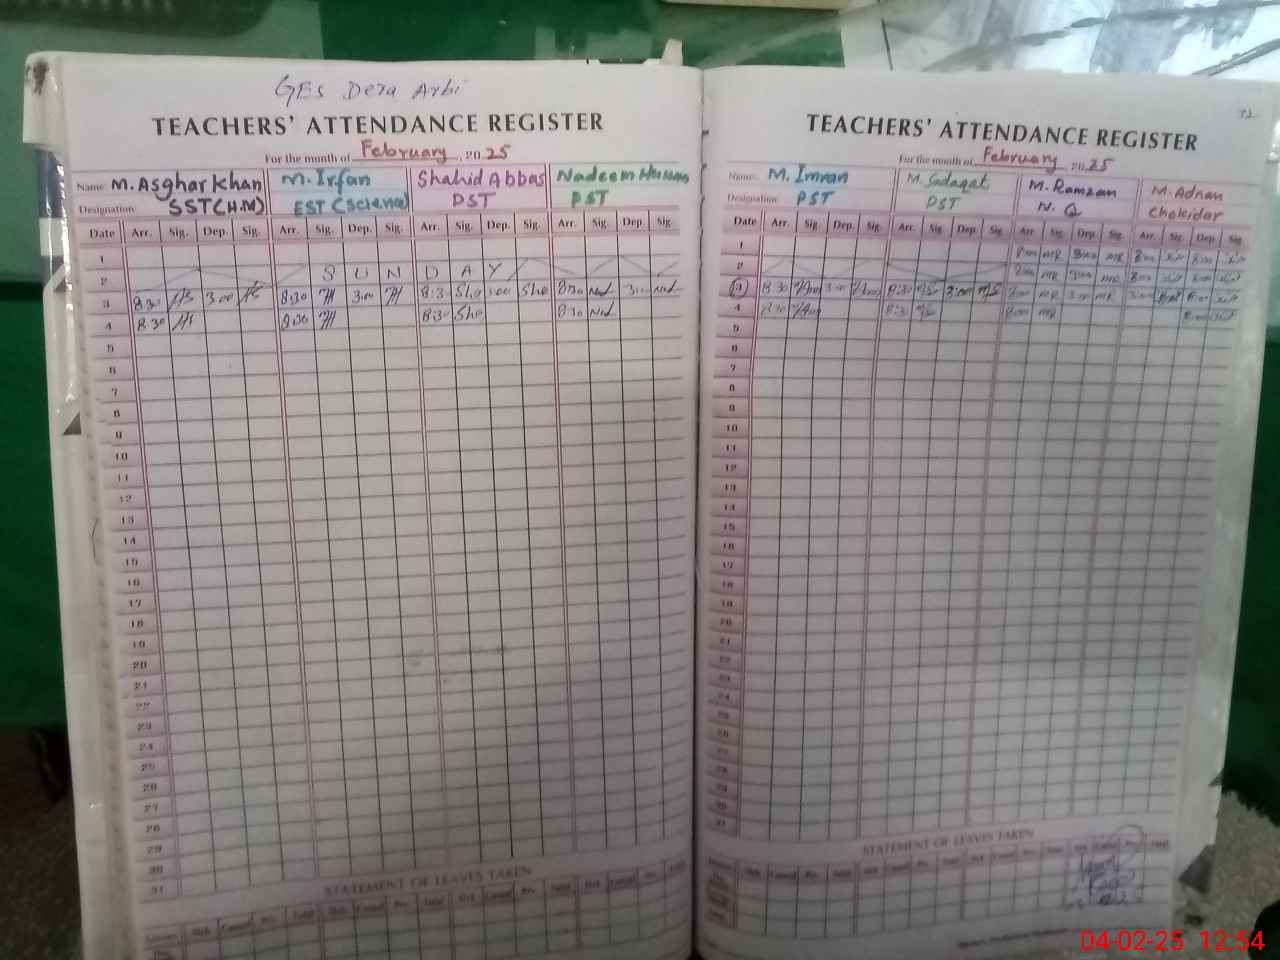 GES Dera Arbi
TEACHERS' ATTENDANCE REGISTER
For the month of February, 2025
Name M. Asghar Khan M. Irfan Shahid Abbas Nadeem Hussain
Designation SST(H.M) EST (Science) PST PST
Date Arr. Sig. Dep. Sig. Arr. Sig. Dep. Sig. Arr. Sig. Dep. Sig. Arr. Sig. Dep. Sig.
1
2 S U N D A Y
3 8:30 3:00 8:30 3:00 8:30 Sha 3:00 Sha 8:30 Nad 3:00 Nad
4 8:30 8:30 8:30 Sha 8:30 Nad
5
6
7
8
9
10
11
12
13
14
15
16
17
18
19
20
21
22
23
24
25
26
27
28
29
30
31
STATEMENT OF LEAVES TAKEN
Sick Casual Pri. Total Sick Casual Pri. Total Sick Casual Pri. Total Sick Casual Pri. Total
TEACHERS' ATTENDANCE REGISTER
For the month of February 2025
Name M. Imran M. Sadaqat M. Ramzan M. Adnan
Designation PST PST N. Q Chokidar
Date Arr. Sig. Dep. Sig. Arr. Sig. Dep. Sig. Arr. Sig. Dep. Sig. Arr. Sig. Dep. Sig.
1 8:00 MR 3:00 MR 8:00 8:00
2 8:00 MR 3:00 MR 8:00 8:00
3 8:30 3:00 8:30 3:00 8:00 MR 3:00 MR 8:00
4 8:30 8:30 8:00 MR 8:00
5
6
7
8
9
10
11
12
13
14
15
16
17
18
19
20
21
22
23
24
25
26
27
28
29
30
31
STATEMENT OF LEAVES TAKEN
Sick Casual Pri. Total Sick Casual Pri. Total Sick Casual Pri. Total Sick Casual Pri. Total
04-02-25 12:54